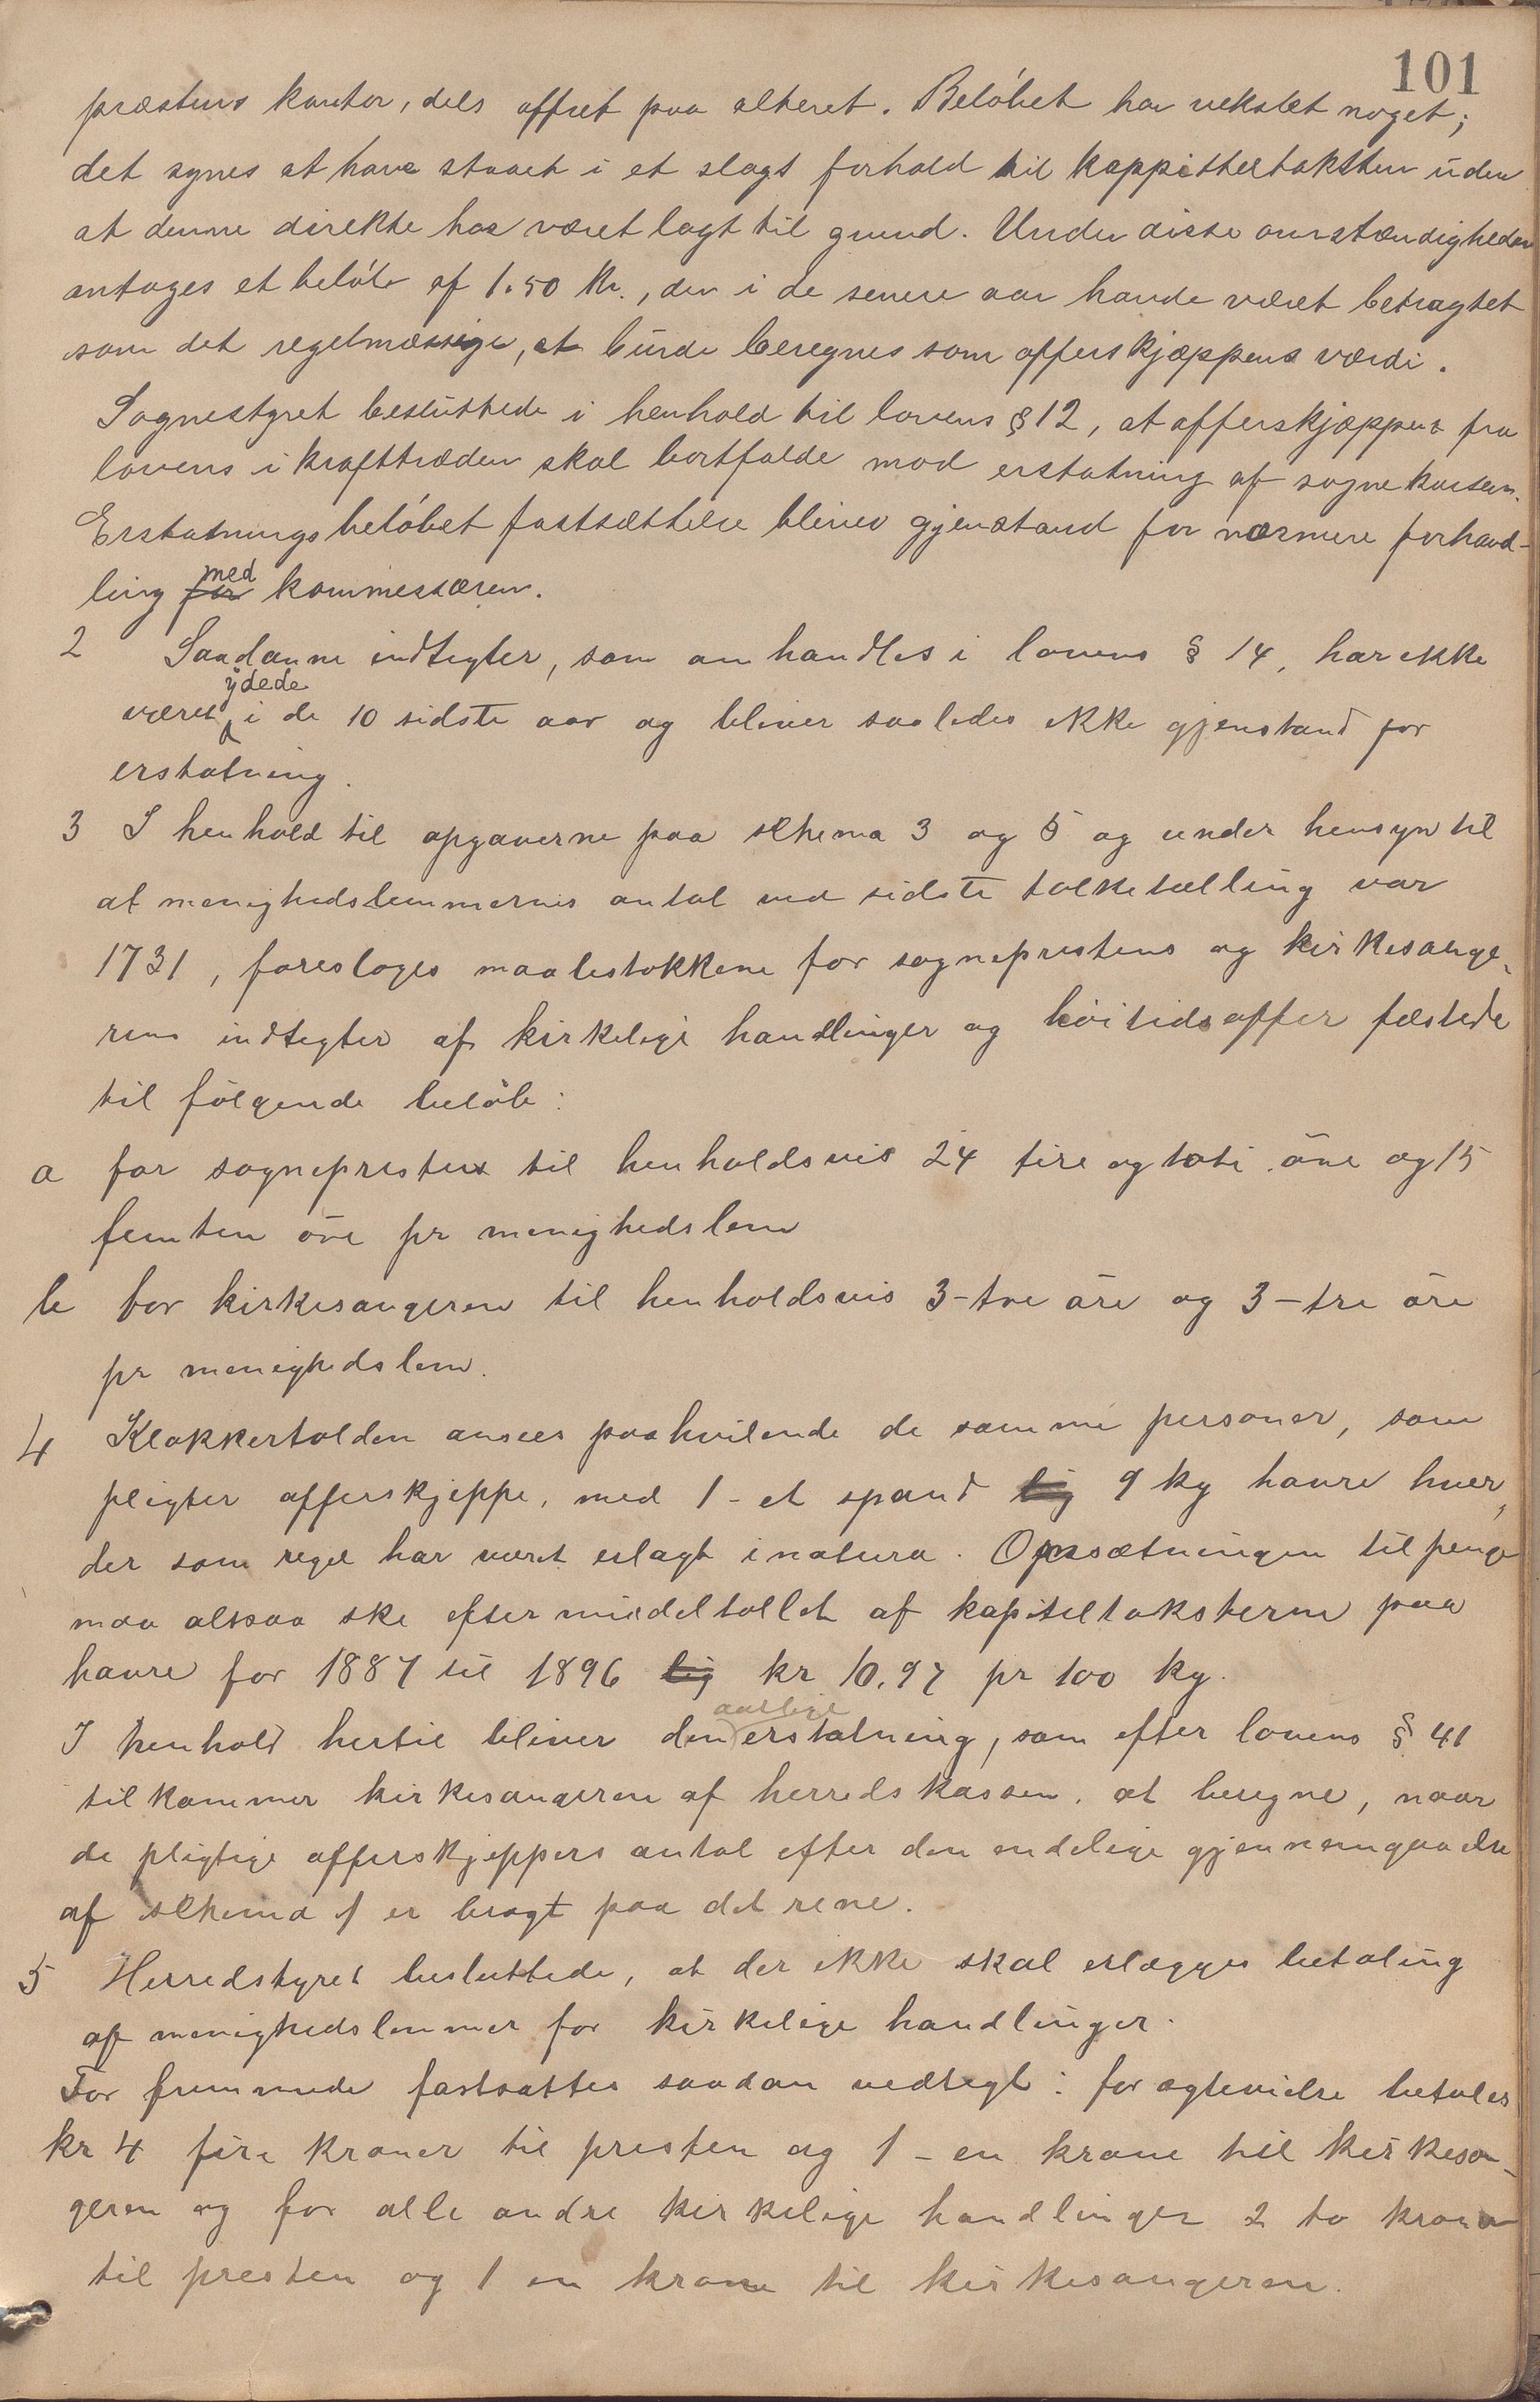 101
præstens kontor, dels offret paa alteret. Beløbet har vekslet noget;
det synes at have staaet i et slags forhold til kappitteltaksten uden
at denne direkte har været lagt til grund. Under disse omstændigheder
antages et beløb af 1.50 kr., der i de senere aar havde været betragtet
som det regelmæssige, at burde beregnes som offerskjæppens værdi.
Sognestyret besluttede i henhold til lovens § 12, at offerskjæppen fra
lovens i krafttræden skal bortfalde mod erstatning af sognekassen.
Erstatningsbeløbet fastsættelse bliver gjenstand for nærmere forhand-
ling for med kommissæren.
2 Saadanne indtegter, som omhandles i lovens § 14, har ikke
været ydede i de 10 sidste aar og bliver saaledes ikke gjenstand for
erstatning.
3 I henhold til opgaverne paa skhema 3 og 5 og under hensyn til
at menighedslemmernes antal ved sidste folketælling var
1731, foresloges maalestokkene for sogneprestens og kirkesange-
rens indtegter af kirkelige handlinger og høitidsoffer festede
til følgende beløb:
a for sognepresten til henholdsvis 24 fire og toti øre og 15
femten øre pr menighedslem
b for kirkesangeren til henholdsvis 3-tre øre og 3-tre øre
pr menighedslem.
4 Klokkertolden ansees paahvilende de samme personer, som
pligter offerskjeppe, med 1-et spand lig 9 kg havre hver,
der som regel har været erlagt in natura. Omsætningen til penge
maa altsaa ske efter middeltallet af kapiteltaksterne paa
havre for 1887 til 1896 lig kr 10.97 pr 100 kg.
I henhold hertil bliver den aarlige erstatning, som efter lovens § 41
tilkommer kirkesangeren af herredskassen, at beregne, naar
de pligtige offerskjeppers antal efter den endelige gjennemgaaelse
af skhema 1 er bragt paa det rene.
5 Herredstyret besluttede, at der ikke skal erlægges betaling
af menighedslemmer for kirkelige handlinger.
For fremmede fastsattes saadan vedtegt: for egtevielse betales
kr 4 fire kroner til presten og 1-en krone til kirkesan-
geren og for alle andre kirkelige handlinger 2 to kroner
til presten og 1 en krone til kirkesangeren.